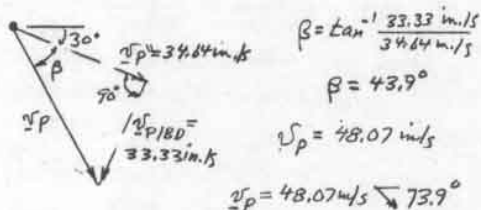 30°
v_P' = 34.64 in./s
β
90°
v_P
/v_P/BD =
33.33 in./s
β = tan⁻¹ 33.33 in./s / 34.64 in./s
β = 43.9°
v_P = 48.07 in/s
v_P = 48.07 in/s ↘ 73.9°